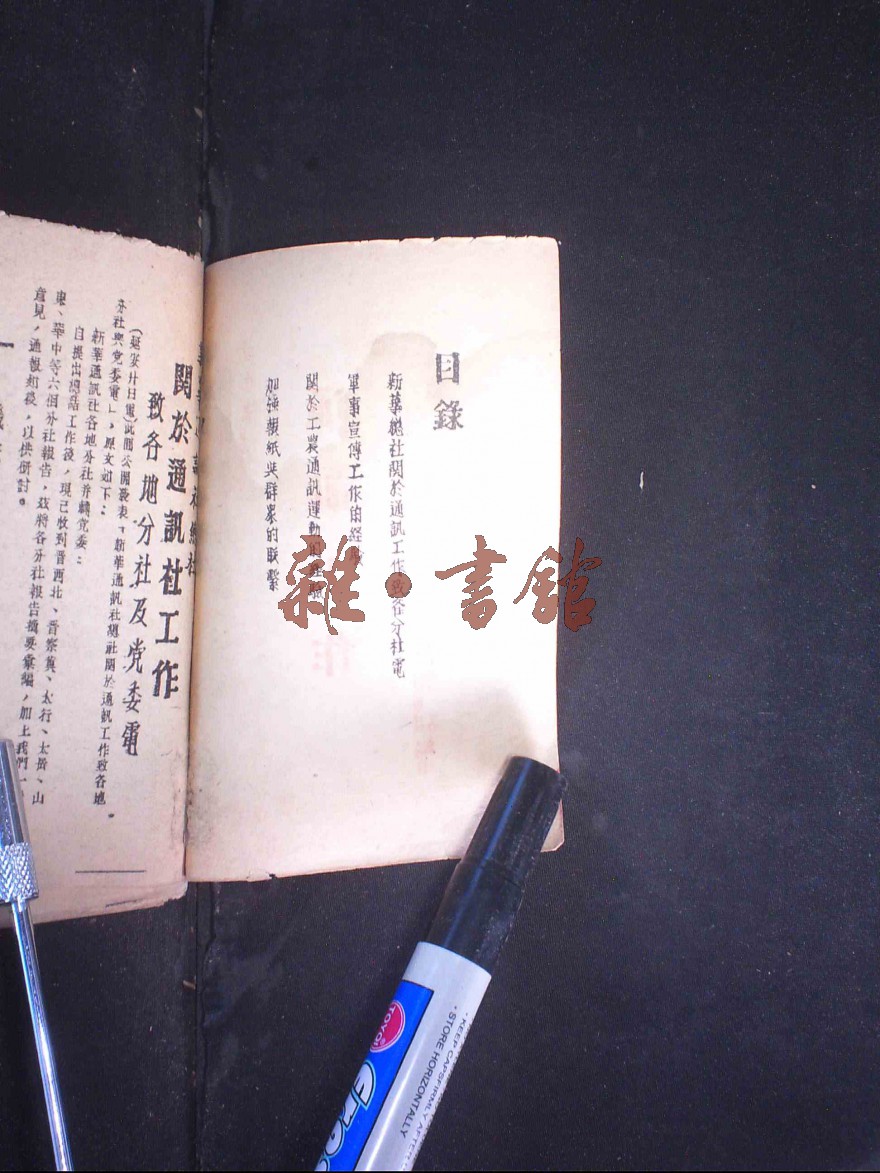 目錄
新華總社關於通訊工作致各分社電
軍事宣傳工作的經驗
關於工農通訊運動的經驗
加強報紙與群眾的聯繫
關於通訊社工作
致各地分社及党委電
(延安廿日電)此間公開發表「新華通訊社總社關於通訊工作致各地
分社與党委電」，原文如下：
新華通訊社各地分社并轉党委：
自提出總結工作後，現已收到晋西北、晋察冀、太行、太岳、山
東、華中等六個分社報告，茲將各分社報告摘要彙編，加上我們
意見，通報如後，以供研討。
雜·書館
TOYO
· KEEP CAPS FIRMLY AFTER
· STORE HORIZONTALLY